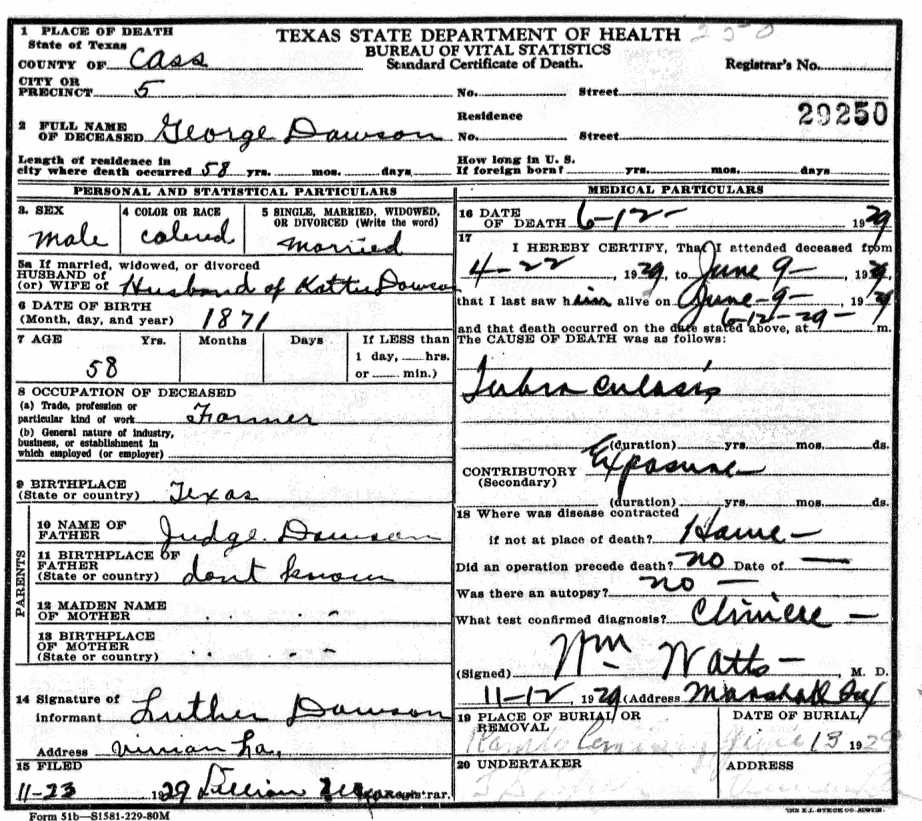 1 PLACE OF DEATH
State of Texas
COUNTY OF Cass
CITY OR
PRECINCT 5
TEXAS STATE DEPARTMENT OF HEALTH
BUREAU OF VITAL STATISTICS
Standard Certificate of Death.
Registrar's No.
No. Street
29250
2 FULL NAME
OF DECEASED George Dawson
Residence
No. Street
Length of residence in
city where death occurred 58 yrs. mos. days
How long in U. S.
If foreign born? yrs. mos. days
PERSONAL AND STATISTICAL PARTICULARS
3. SEX
male
4 COLOR OR RACE
colered
5 SINGLE, MARRIED, WIDOWED,
OR DIVORCED (Write the word)
married
5a If married, widowed, or divorced
HUSBAND OF
(or) WIFE OF Husband of Dawson
6 DATE OF BIRTH
(Month, day, and year) 1871
7 AGE Yrs. Months Days
58
If LESS than
1 day, hrs.
or min.)
8 OCCUPATION OF DECEASED
(a) Trade, profession or
particular kind of work Farmer
(b) General nature of industry,
business, or establishment in
which employed (or employer)
9 BIRTHPLACE
(State or country) Texas
PARENTS
10 NAME OF
FATHER Judge Dawson
11 BIRTHPLACE OF
FATHER
(State or country) dont know
12 MAIDEN NAME
OF MOTHER
13 BIRTHPLACE
OF MOTHER
(State or country)
14 Signature of
informant Luther Dawson
Address La,
15 FILED
11-23 1929 Lillian Registrar.
Form 51b—S1581-229-80M
MEDICAL PARTICULARS
16 DATE
OF DEATH 6-12- 1929
17
I HEREBY CERTIFY, That I attended deceased from
4-22, 1929, to June 9-, 1929,
that I last saw him alive on June-9-, 1929
6-12-29-
and that death occurred on the date stated above, at m.
The CAUSE OF DEATH was as follows:
Tubra culasis
(duration) yrs. mos. ds.
CONTRIBUTORY Exposure
(Secondary)
(duration) yrs. mos. ds.
18 Where was disease contracted
if not at place of death? Home-
Did an operation precede death? no Date of —
Was there an autopsy? no —
What test confirmed diagnosis? —
(Signed) Wm Watts-, M. D.
11-12, 1929 (Address Marshall Tex
19 PLACE OF BURIAL OR
REMOVAL
DATE OF BURIAL
June 13 1929
20 UNDERTAKER
ADDRESS
THE E.L. STECK CO. AUSTIN.